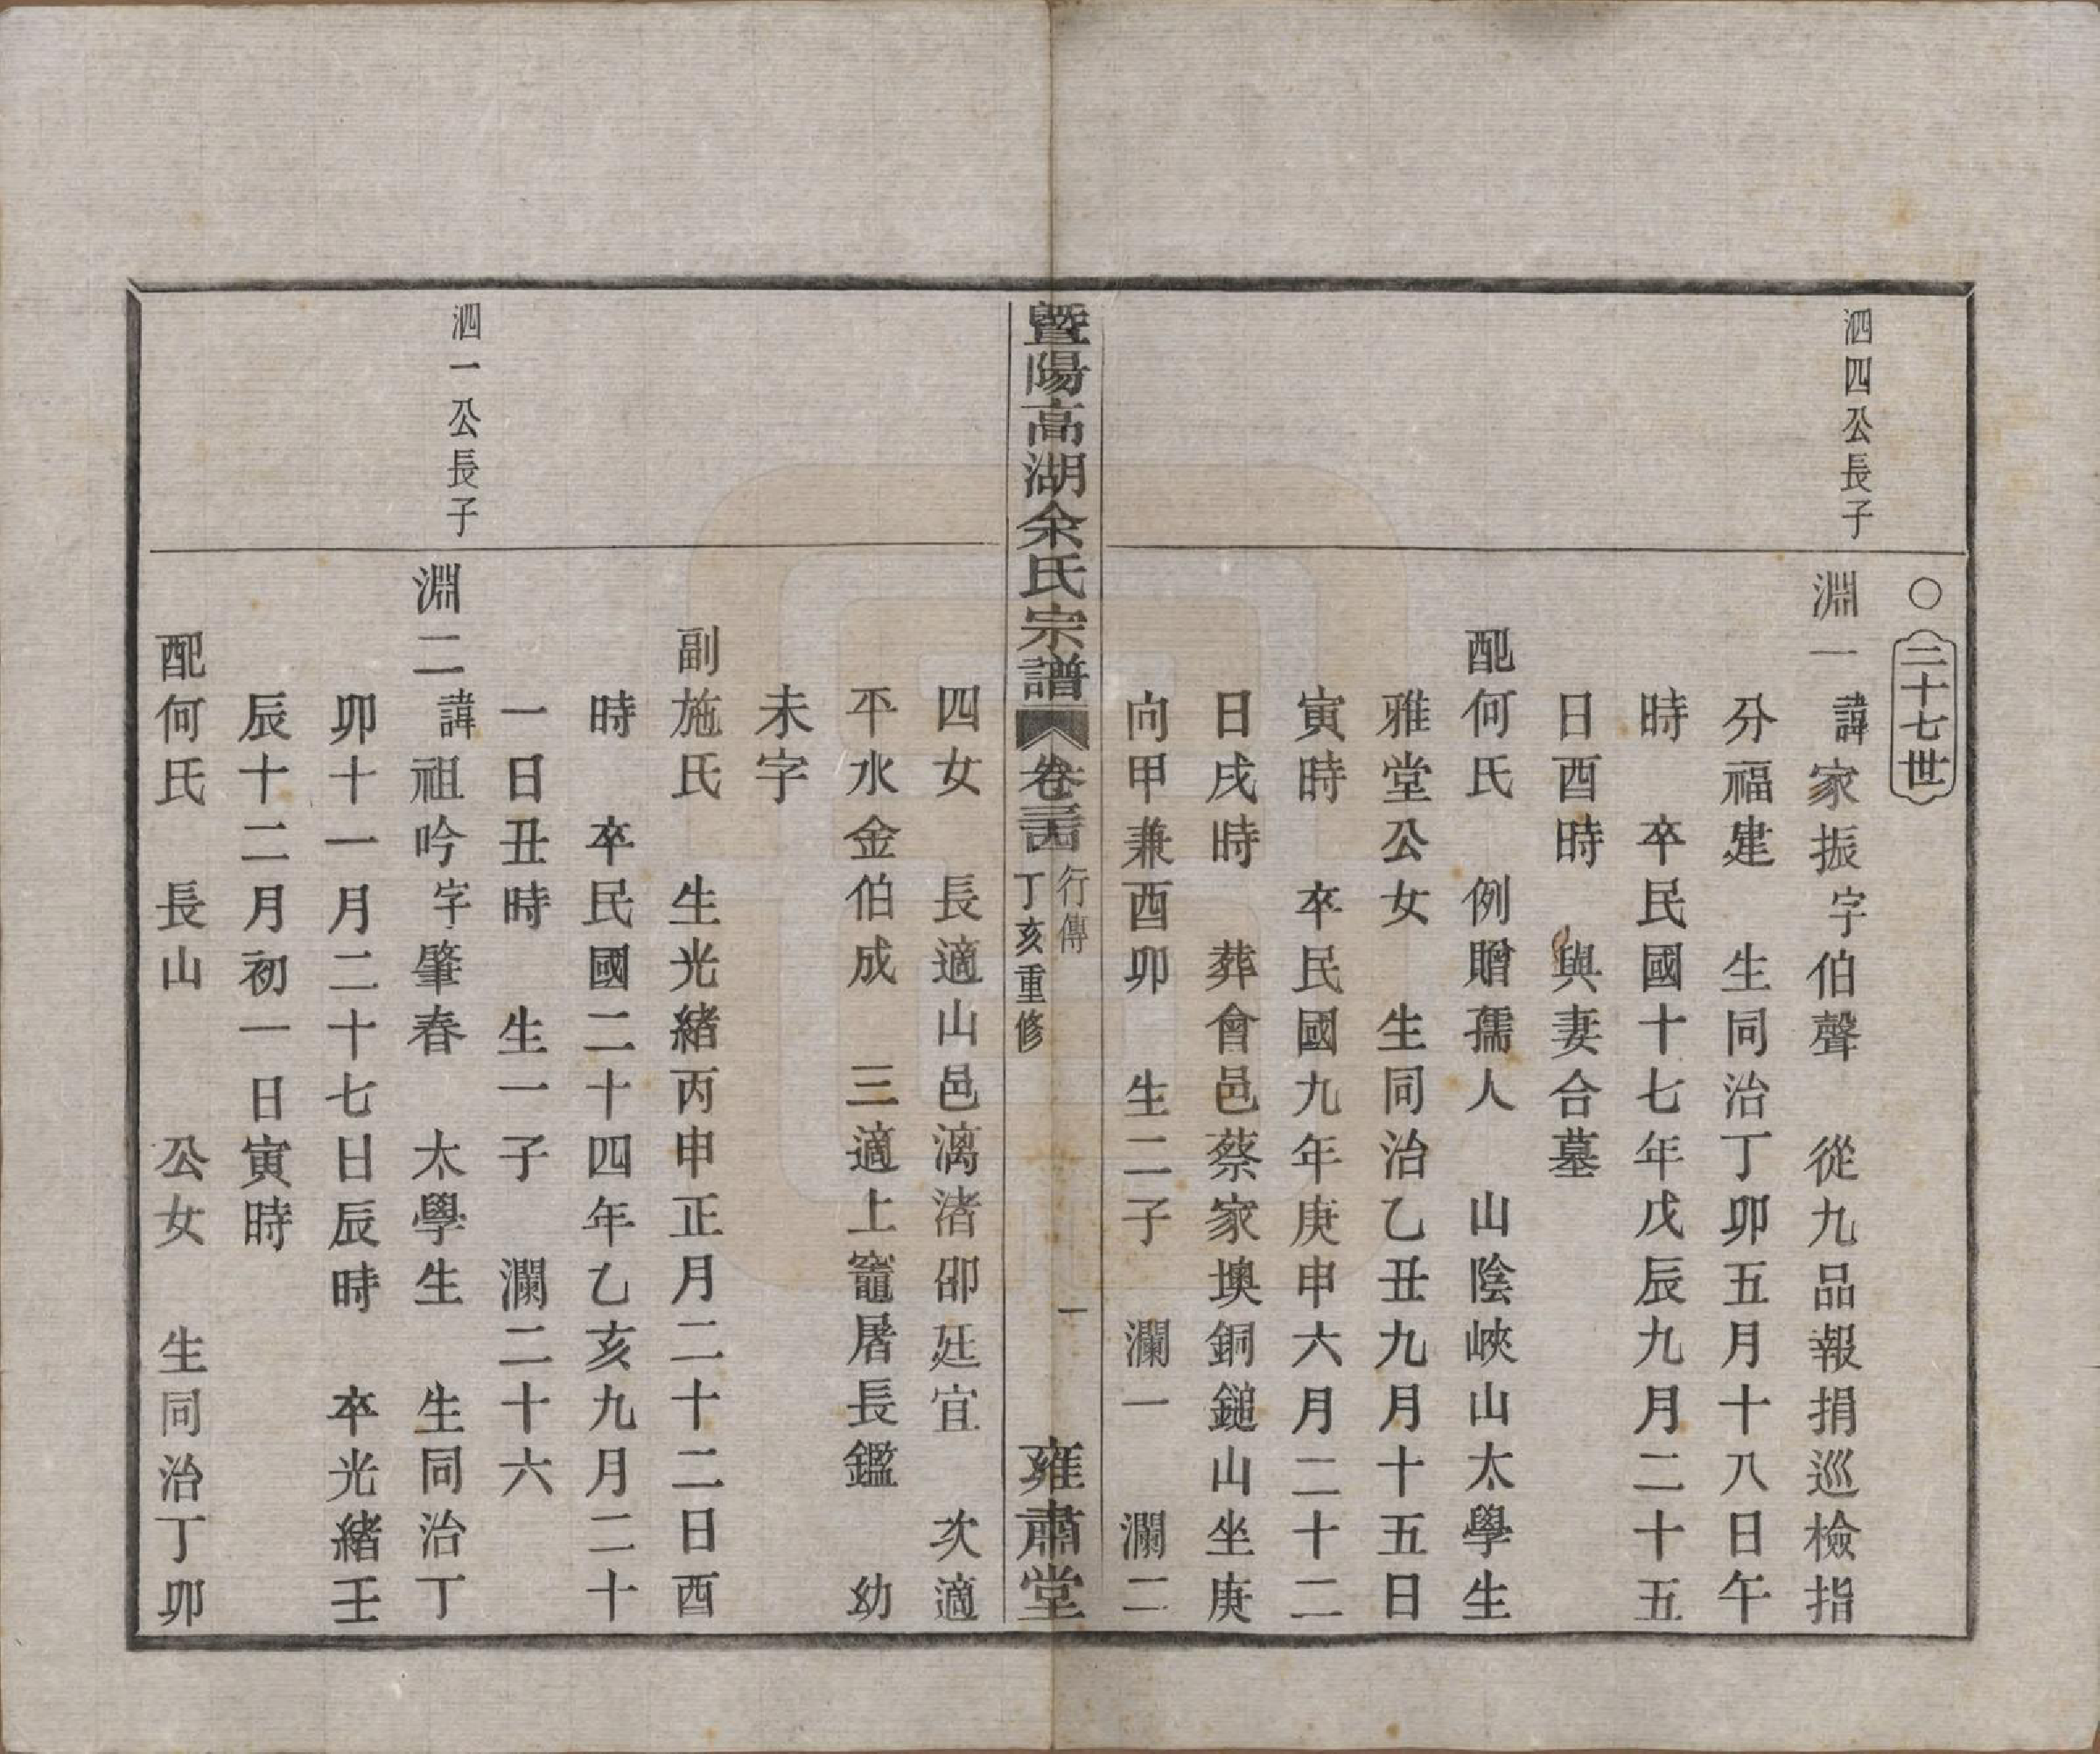 ○三十七世
泗四公長子
淵一諱家振字伯聲　從九品報捐巡檢指
分福建　生同治丁卯五月十八日午
時　卒民國十七年戊辰九月二十五
日酉時　與妻合墓
配何氏　例贈孺人　山陰峽山太學生
雅堂公女　生同治乙丑九月十五日
寅時　卒民國九年庚申六月二十二
日戌時　葬會邑蔡家墺銅鎚山坐庚
向甲兼酉卯　生二子　瀾一　瀾二
暨陽高湖余氏宗譜　卷三四　行傳　丁亥重修　一　雍肅堂
四女　長適山邑漓渚邵廷宜　次適
平水金伯成　三適上竈屠長鑑　幼
未字
副施氏　生光緒丙申正月二十二日酉
時　卒民國二十四年乙亥九月二十
一日丑時　生一子　瀾二十六
泗一公長子
淵二諱祖吟字肇春　太學生　生同治丁
卯十一月二十七日辰時　卒光緒壬
辰十二月初一日寅時
配何氏　長山　公女　生同治丁卯